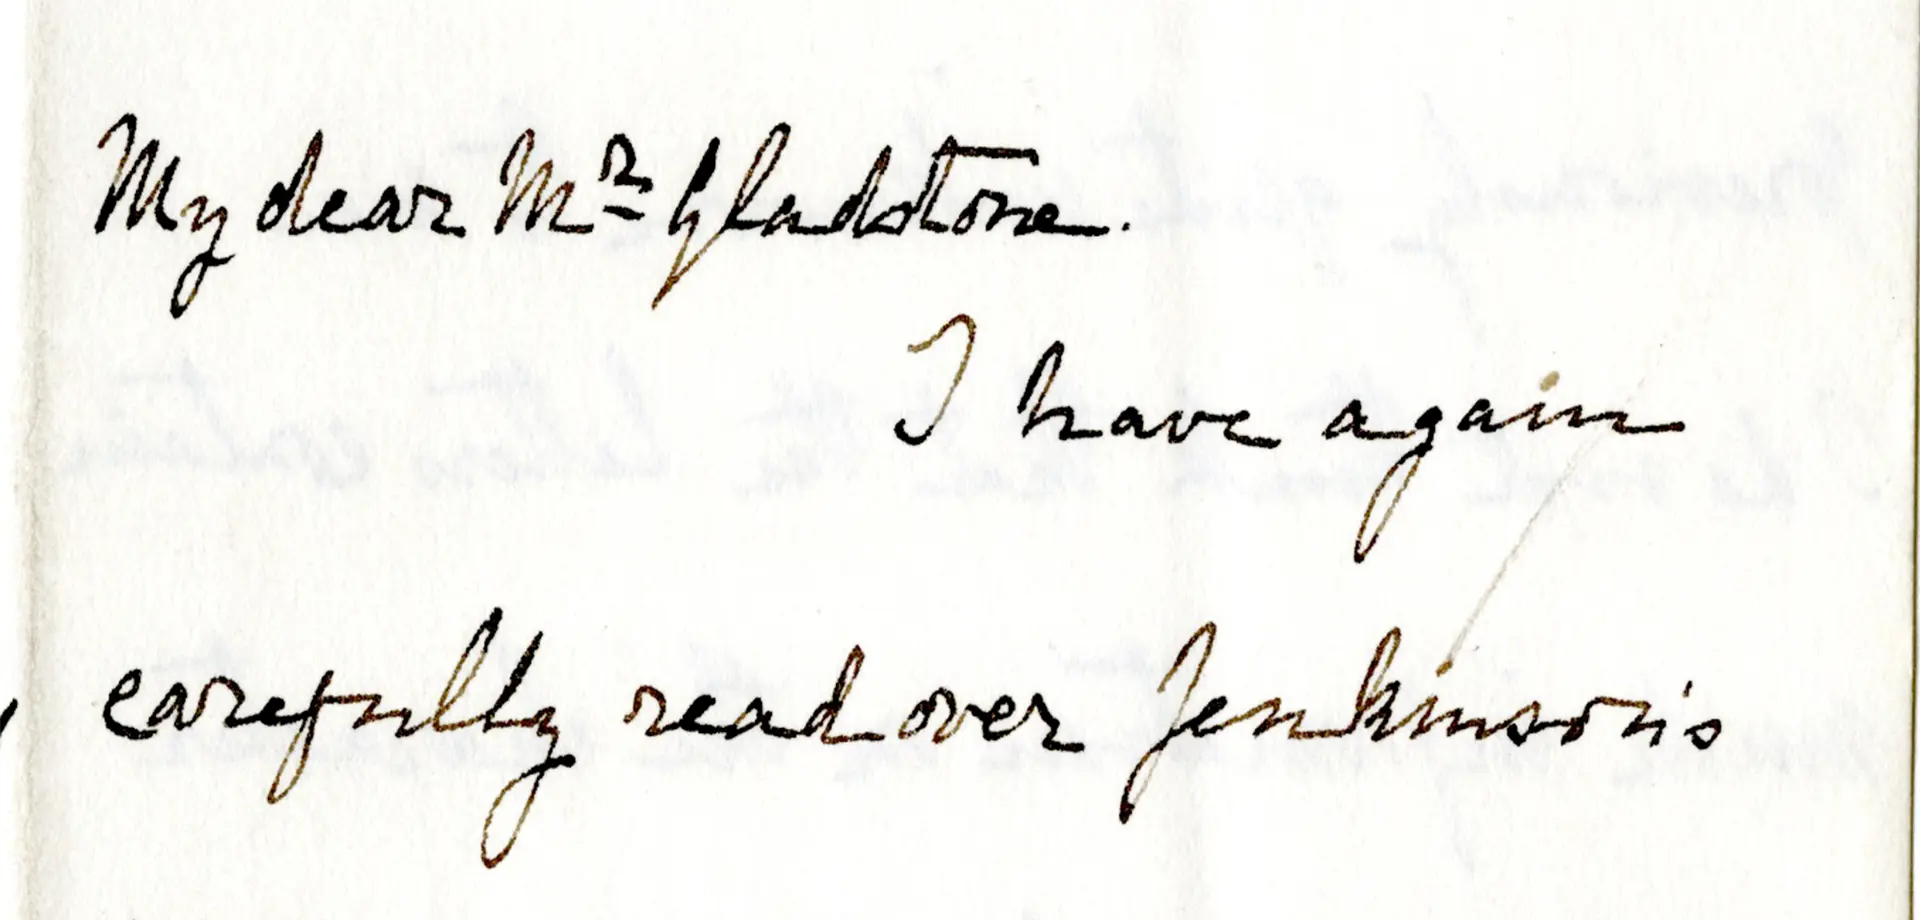 My dear Mr Gladstone.
I have again
carefully read over Jenkinson's